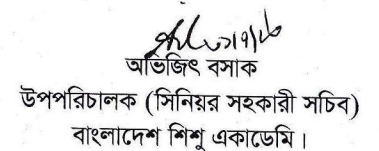 অভিজিৎ বসাক
উপপরিচালক (সিনিয়র সহকারী সচিব)
বাংলাদেশ শিশু একাডেমি।